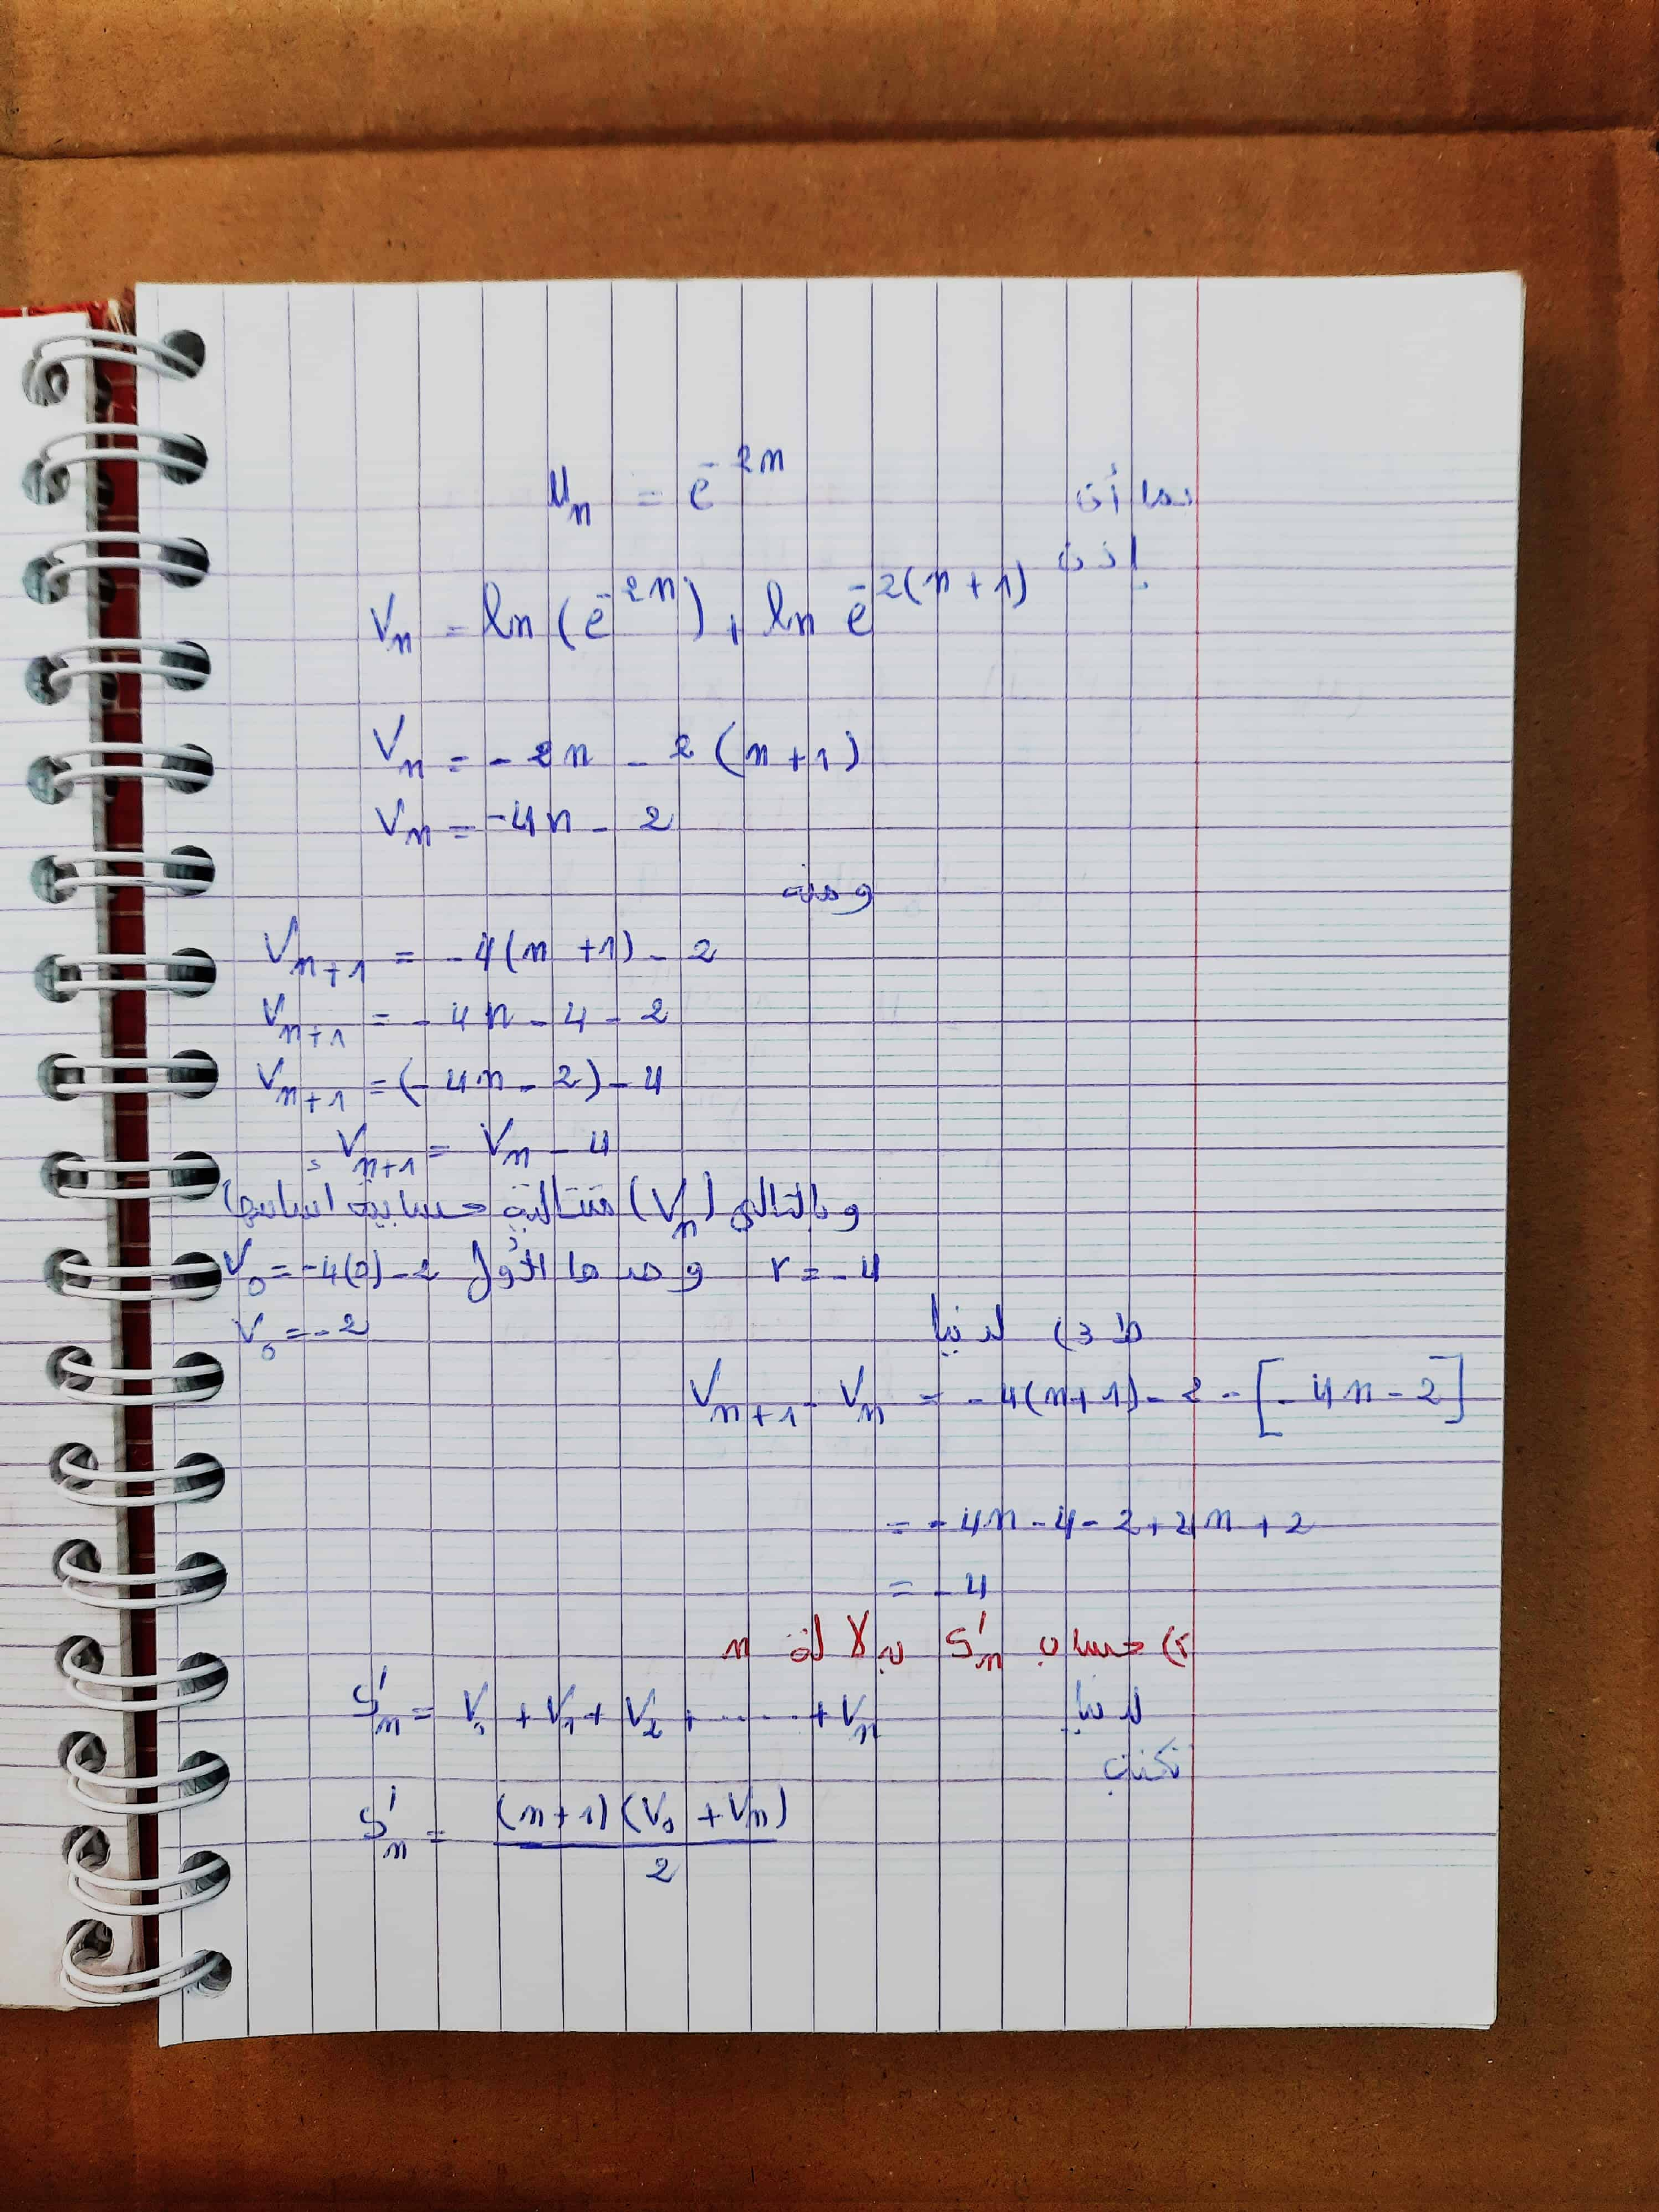 بما أن u_n = e^{-2n}
إذن
V_n = ln(e^{-2n}) + ln e^{-2(n+1)}
V_n = -2n - 2(n+1)
V_n = -4n - 2
ومنه
V_{n+1} = -4(n+1) - 2
V_{n+1} = -4n - 4 - 2
V_{n+1} = (-4n - 2) - 4
V_{n+1} = V_n - 4
وبالتالي (V_n) متتالية حسابية أساسها
r = -4 وحدها الأول V_0 = -4(0) - 2
V_0 = -2
ط 3) لدينا
V_{n+1} - V_n = -4(n+1) - 2 - [-4n - 2]
= -4n - 4 - 2 + 4n + 2
= -4
2) حساب S'_n بدلالة n
لدينا S'_n = V_0 + V_1 + V_2 + ...... + V_n
تكتب
S'_n = (n+1)(V_0 + V_n) / 2